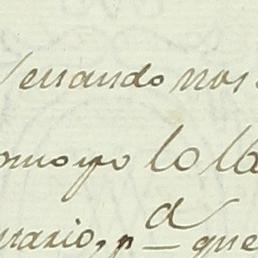 errando nos
omo yo lo lla
nario, p.a que